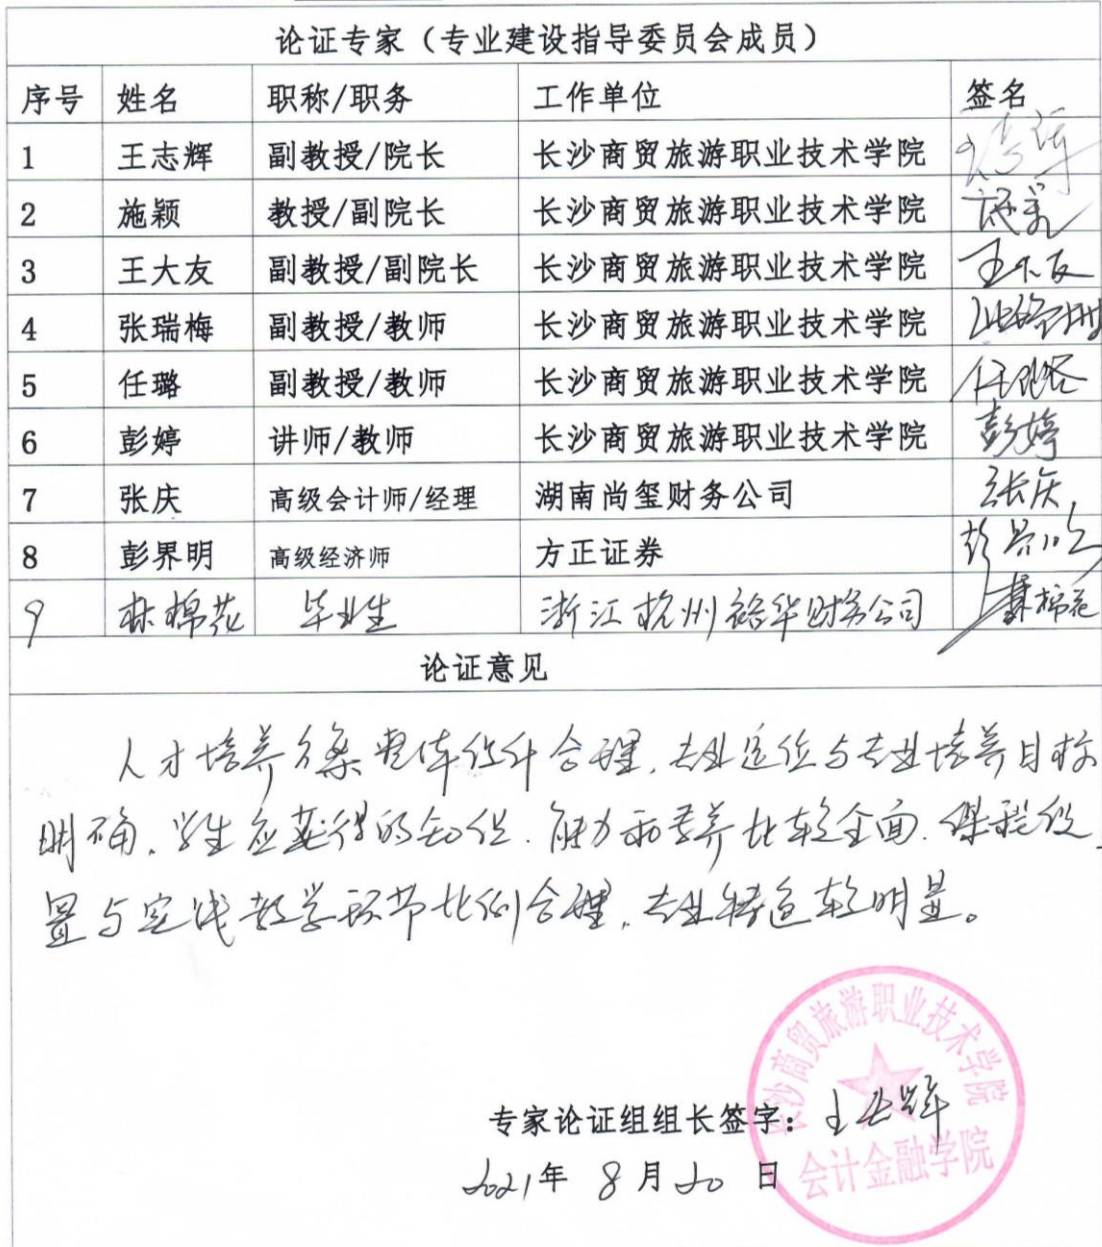 论证专家（专业建设指导委员会成员）
序号 姓名 职称/职务 工作单位 签名
1 王志辉 副教授/院长 长沙商贸旅游职业技术学院 王志辉
2 施颖 教授/副院长 长沙商贸旅游职业技术学院 施颖
3 王大友 副教授/副院长 长沙商贸旅游职业技术学院 王大友
4 张瑞梅 副教授/教师 长沙商贸旅游职业技术学院 张瑞梅
5 任璐 副教授/教师 长沙商贸旅游职业技术学院 任璐
6 彭婷 讲师/教师 长沙商贸旅游职业技术学院 彭婷
7 张庆 高级会计师/经理 湖南尚玺财务公司 张庆
8 彭界明 高级经济师 方正证券 彭界明
9 林棉花 毕业生 浙江杭州 华财务公司 林棉花
论证意见
人才培养方案整体设计合理，专业定位与专业培养目标
明确，学生应获得的知识、能力和素养比较全面，课程设
置与实践教学环节比例合理，专业特色较明显。
长沙商贸旅游职业技术学院
专家论证组组长签字：王志辉
会计金融学院
2021年 8月20日